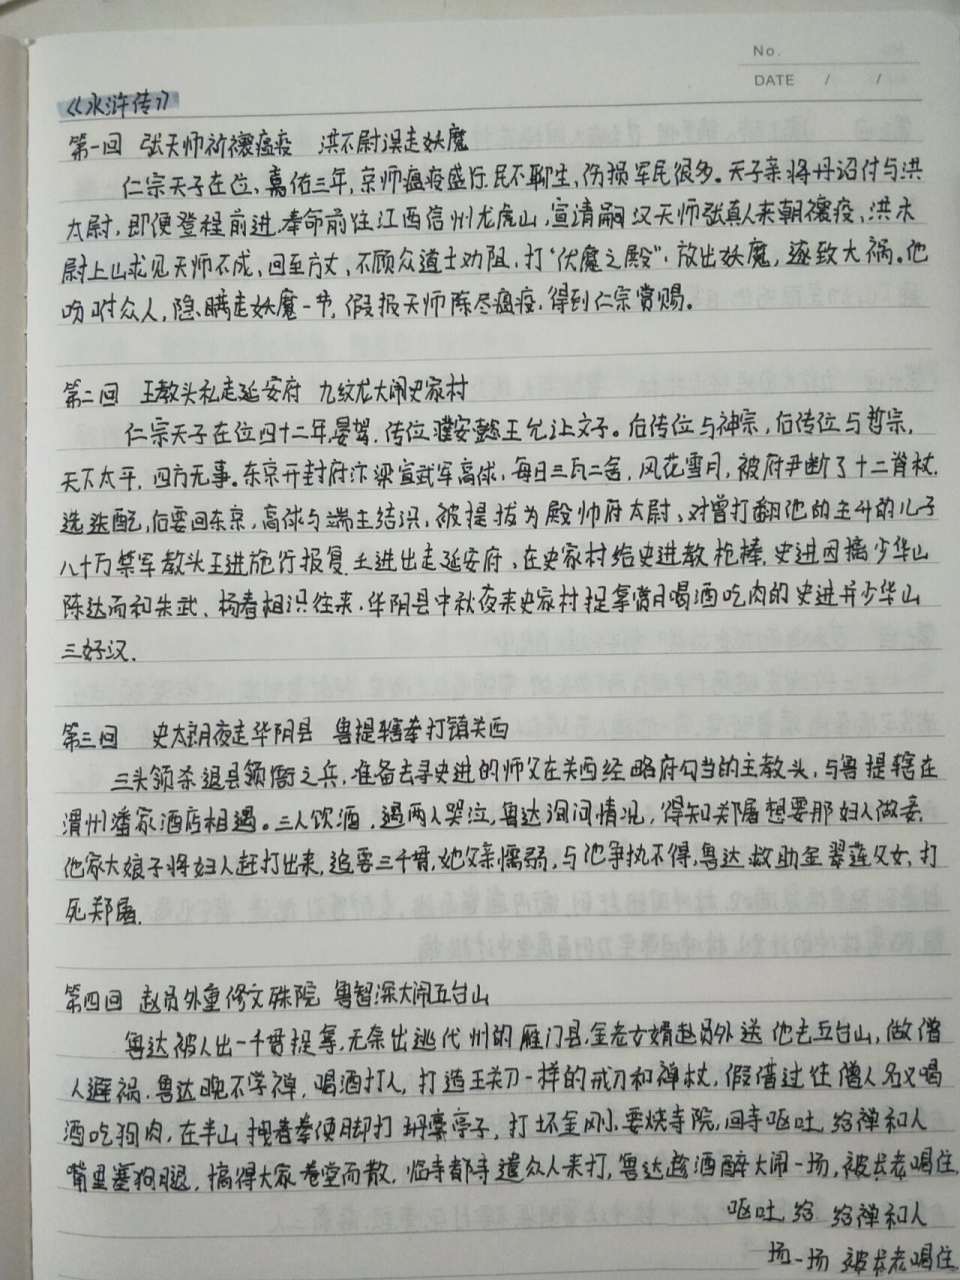 No.
DATE / /
《水浒传》
第一回 张天师祈禳瘟疫 洪太尉误走妖魔
仁宗天子在位、嘉佑三年,京师瘟疫盛行.民不聊生,伤损军民很多。天子亲将丹诏付与洪
太尉,即便登程前进.奉命前往江西信州龙虎山,宣请嗣汉天师张真人来朝禳疫、洪太
尉上山求见天师不成、回至方丈,不顾众道士劝阻,打“伏魔之殿”,放出妖魔,遂致大祸。他
吩咐众人,隐瞒走妖魔一节,假报天师除尽瘟疫.得到仁宗赏赐。
第二回 王教头私走延安府 九纹龙大闹史家村
仁宗天子在位四十二年晏驾.传位濮安懿王允让之子。后传位与神宗,后传位与哲宗.
天下太平,四方无事。东京开封府汴梁宣武军高俅,每日三瓦二舍,风花雪月,被府尹断了十二脊杖.
迭配,后要回东京,高俅与端王结识,被提拔为殿帅府太尉、对曾打翻他的王升的儿子
八十万禁军教头王进施行报复.王进出走延安府、在史家村给史进教枪棒.史进因擒少华山
陈达而和朱武、杨春相识往来.华阴县中秋夜来史家村捉拿赏月喝酒吃肉的史进并少华山
三好汉.
第三回 史大郎夜走华阴县 鲁提辖拳打镇关西
三头领杀退县领衙之兵.准备去寻史进的师父在关西经略府勾当的王教头,与鲁提辖在
渭州潘家酒店相遇。三人饮酒,遇两人哭泣,鲁达询问情况,得知郑屠想要那妇人做妾.
他家大娘子将妇人赶打出来,追要三千贯,她父亲懦弱,与他争执不得,鲁达救助金翠莲父女,打
死郑屠.
第四回 赵员外重修文殊院 鲁智深大闹五台山
鲁达被人出一千贯捉拿.无奈出逃代州的雁门县.金老女婿赵员外送他去五台山,做僧
人避祸.鲁达晚不学禅,喝酒打人,打造王关刀一样的戒刀和禅杖,假借过往僧人名义喝
酒吃狗肉,在半山拽着拳使脚打坍亭子,打坏金刚.要烧寺院,回寺呕吐.给禅和人
嘴里塞狗腿.搞得大家卷堂而散.临寺都寺遣众人来打,鲁达趁酒醉大闹一场,被长老喝住.
呕吐.给 给禅和人
场一场 被长老喝住.